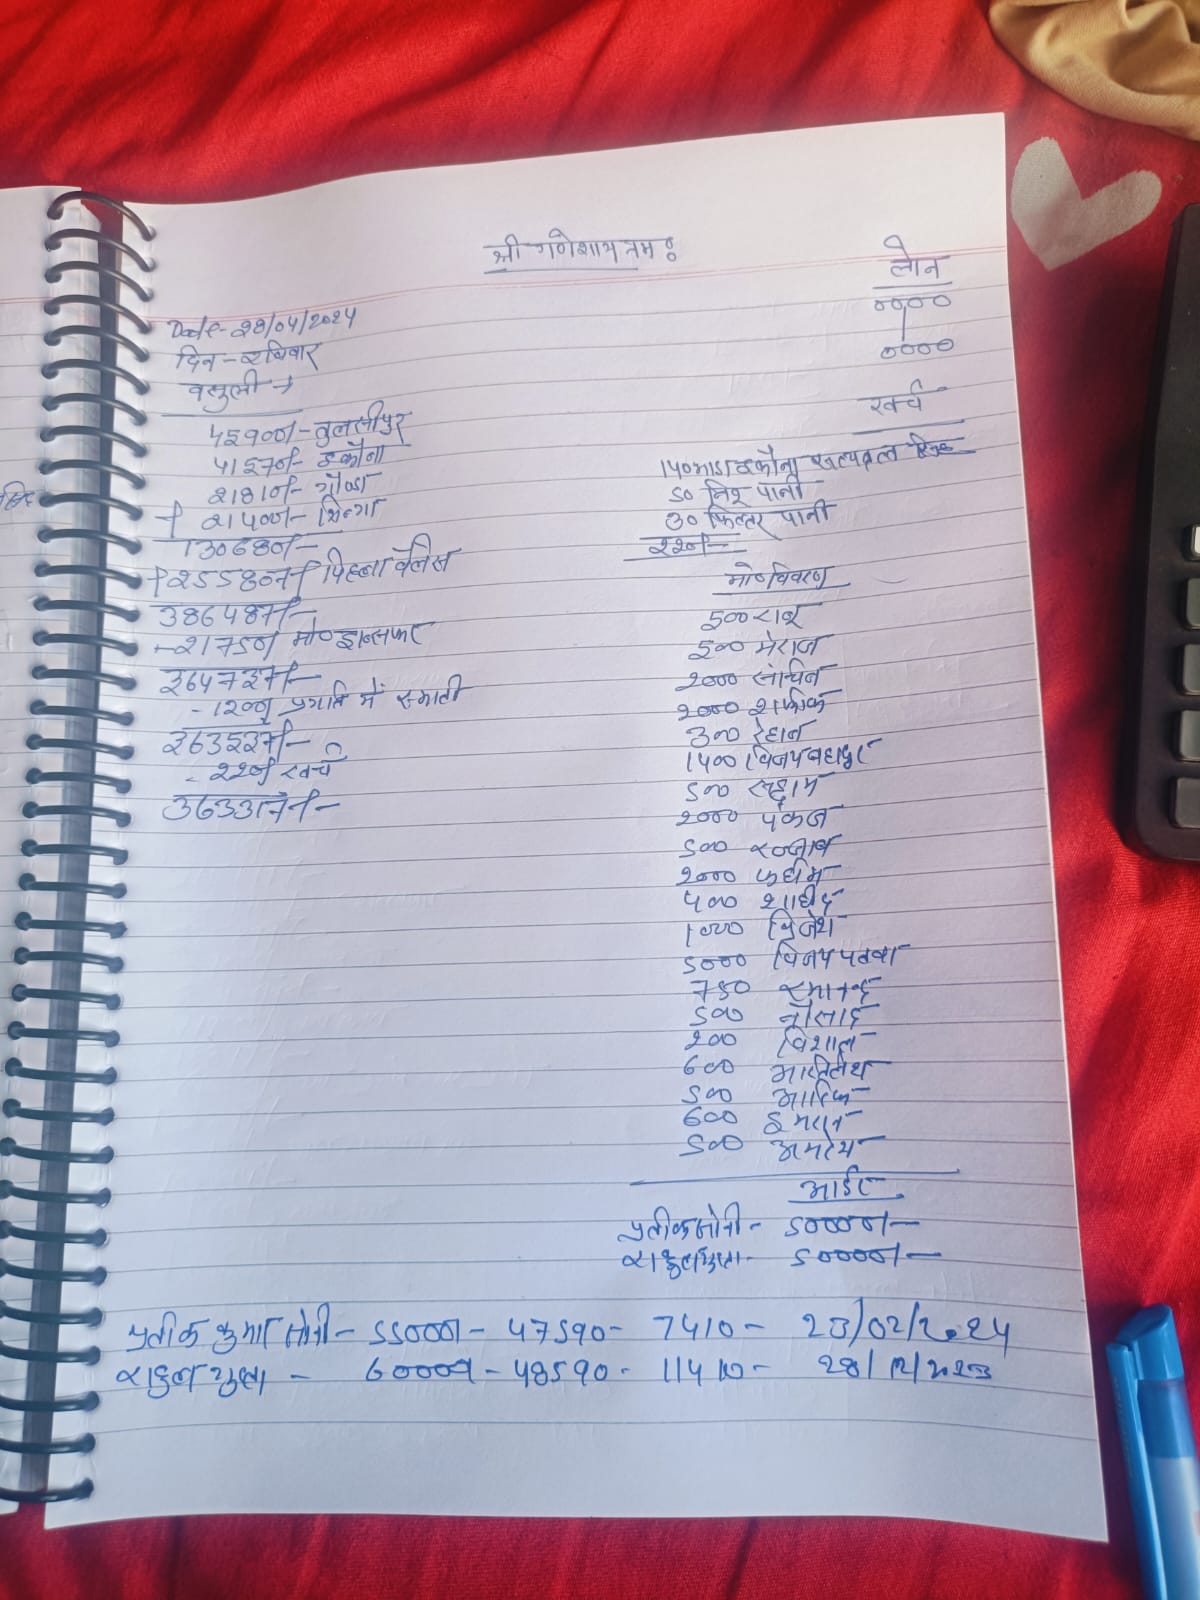 श्री गणेशाय नमः
लोन
0000
0000
Date- 28/04/2024
दिन - रविवार
वसुली →
45900/- तुलसीपुर
41570/- इकौना
21810/- गोण्डा
+ 21400/- भिनगा
130680/-
+ 255807/- पिछला वैलेंस
386487/-
- 21750/ मो० ट्रान्सफर
364737/-
- 1200/ प्रगति में
363537/-
- 220/ खर्च
363317/-
खर्च
140 भाडा इकौना सत्यव्रत
50 पानी
30 फिल्टर पानी
220/-
मो० विवरण
500
500 मेराज
2000 सचिन
2000 शफीक
300 रेहान
1500 विजय बहादुर
500 सद्दाम
2000 पंकज
500
2000 फहीम
400 शाहीद
1000 व्रिजेश
5000 विजय
750
500 नौसाद
200 विशाल
600
500 आरिफ
600 इमरान
500
प्रतीक सोनी - 50000/-
राहुल गुप्ता - 50000/-
प्रतीक कुमार सोनी - 55000 - 47590 - 7410 - 23/02/2024
राहुल गुप्ता - 60000 - 48590 - 11410 - 28/12/2023